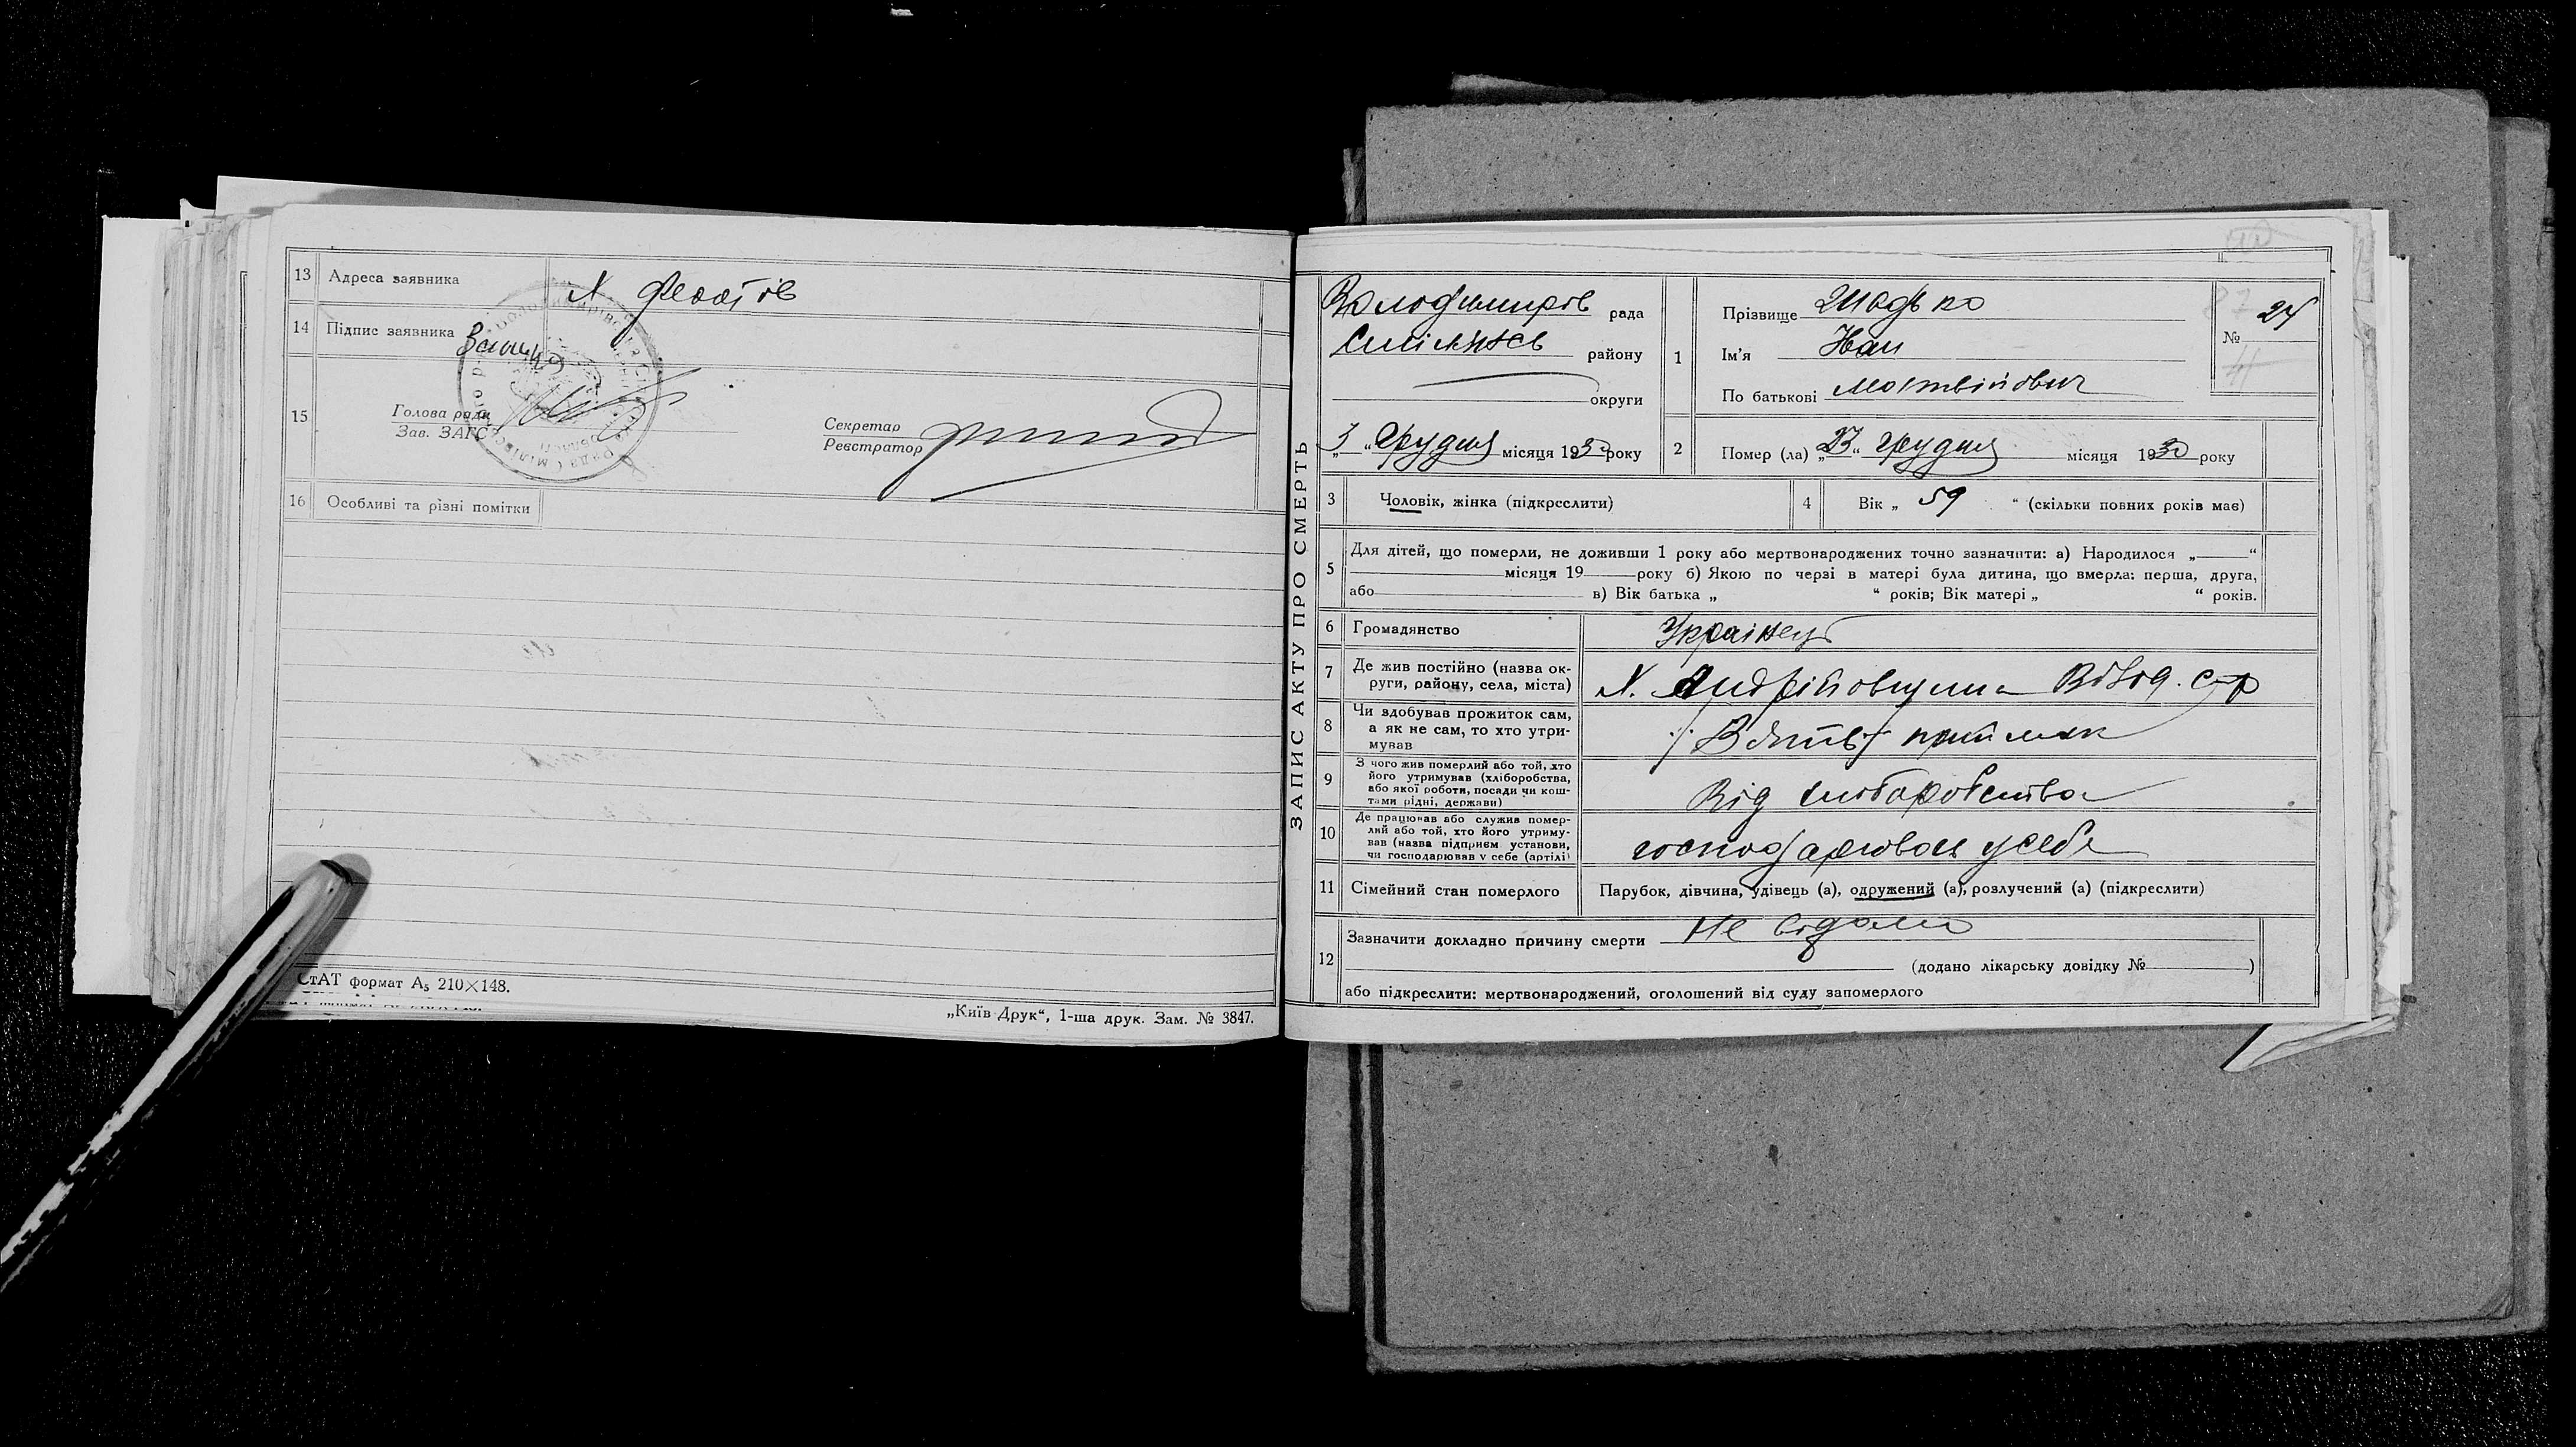 13 Адреса заявника Х Федотів
14 Підпис заявника
15 Голова ради
Зав. ЗАГС
Секретар
Реєстратор
16 Особливі та різні помітки
СтАТ формат А₅ 210×148.
„Київ-Друк“, 1-ша друк. Зам. № 3847.
ЗАПИС АКТУ ПРО СМЕРТЬ
Володимирів рада
Смілянсь району
округи
„3“ Грудня місяця 1930 року
1 Прізвище Шадько
Ім'я Іван
По батькові Матвійович
№ 24
2 Помер (ла) „ “ грудня місяця 1930 року
3 Чоловік, жінка (підкреслити)
4 Вік „ 59 “ (скільки повних років має)
5 Для дітей, що померли, не доживши 1 року або мертвонароджених точно зазначити: а) Народилося „ “
місяця 19 року б) Якою по черзі в матері була дитина, що вмерла: перша, друга,
або в) Вік батька „ “ років; Вік матері „ “ років.
6 Громадянство Українець
7 Де жив постійно (назва ок-
руги, району, села, міста) Х. Андрійовщина
8 Чи здобував прожиток сам,
а як не сам, то хто утри-
мував приймак
9 З чого жив померлий або той, хто
його утримував (хліборобства,
або якої роботи, посади чи кош-
тами рідні, держави) Від хліборобства
10 Де працював або служив помер-
лий або той, хто його утриму-
вав (назва підприєм установи,
чи господарював у себе (артілі) господарював усебе
11 Сімейний стан померлого Парубок, дівчина, удівець (а), одружений (а), розлучений (а) (підкреслити)
12 Зазначити докладно причину смерти Не відомо
(додано лікарську довідку № )
або підкреслити: мертвонароджений, оголошений від суду запомерлого